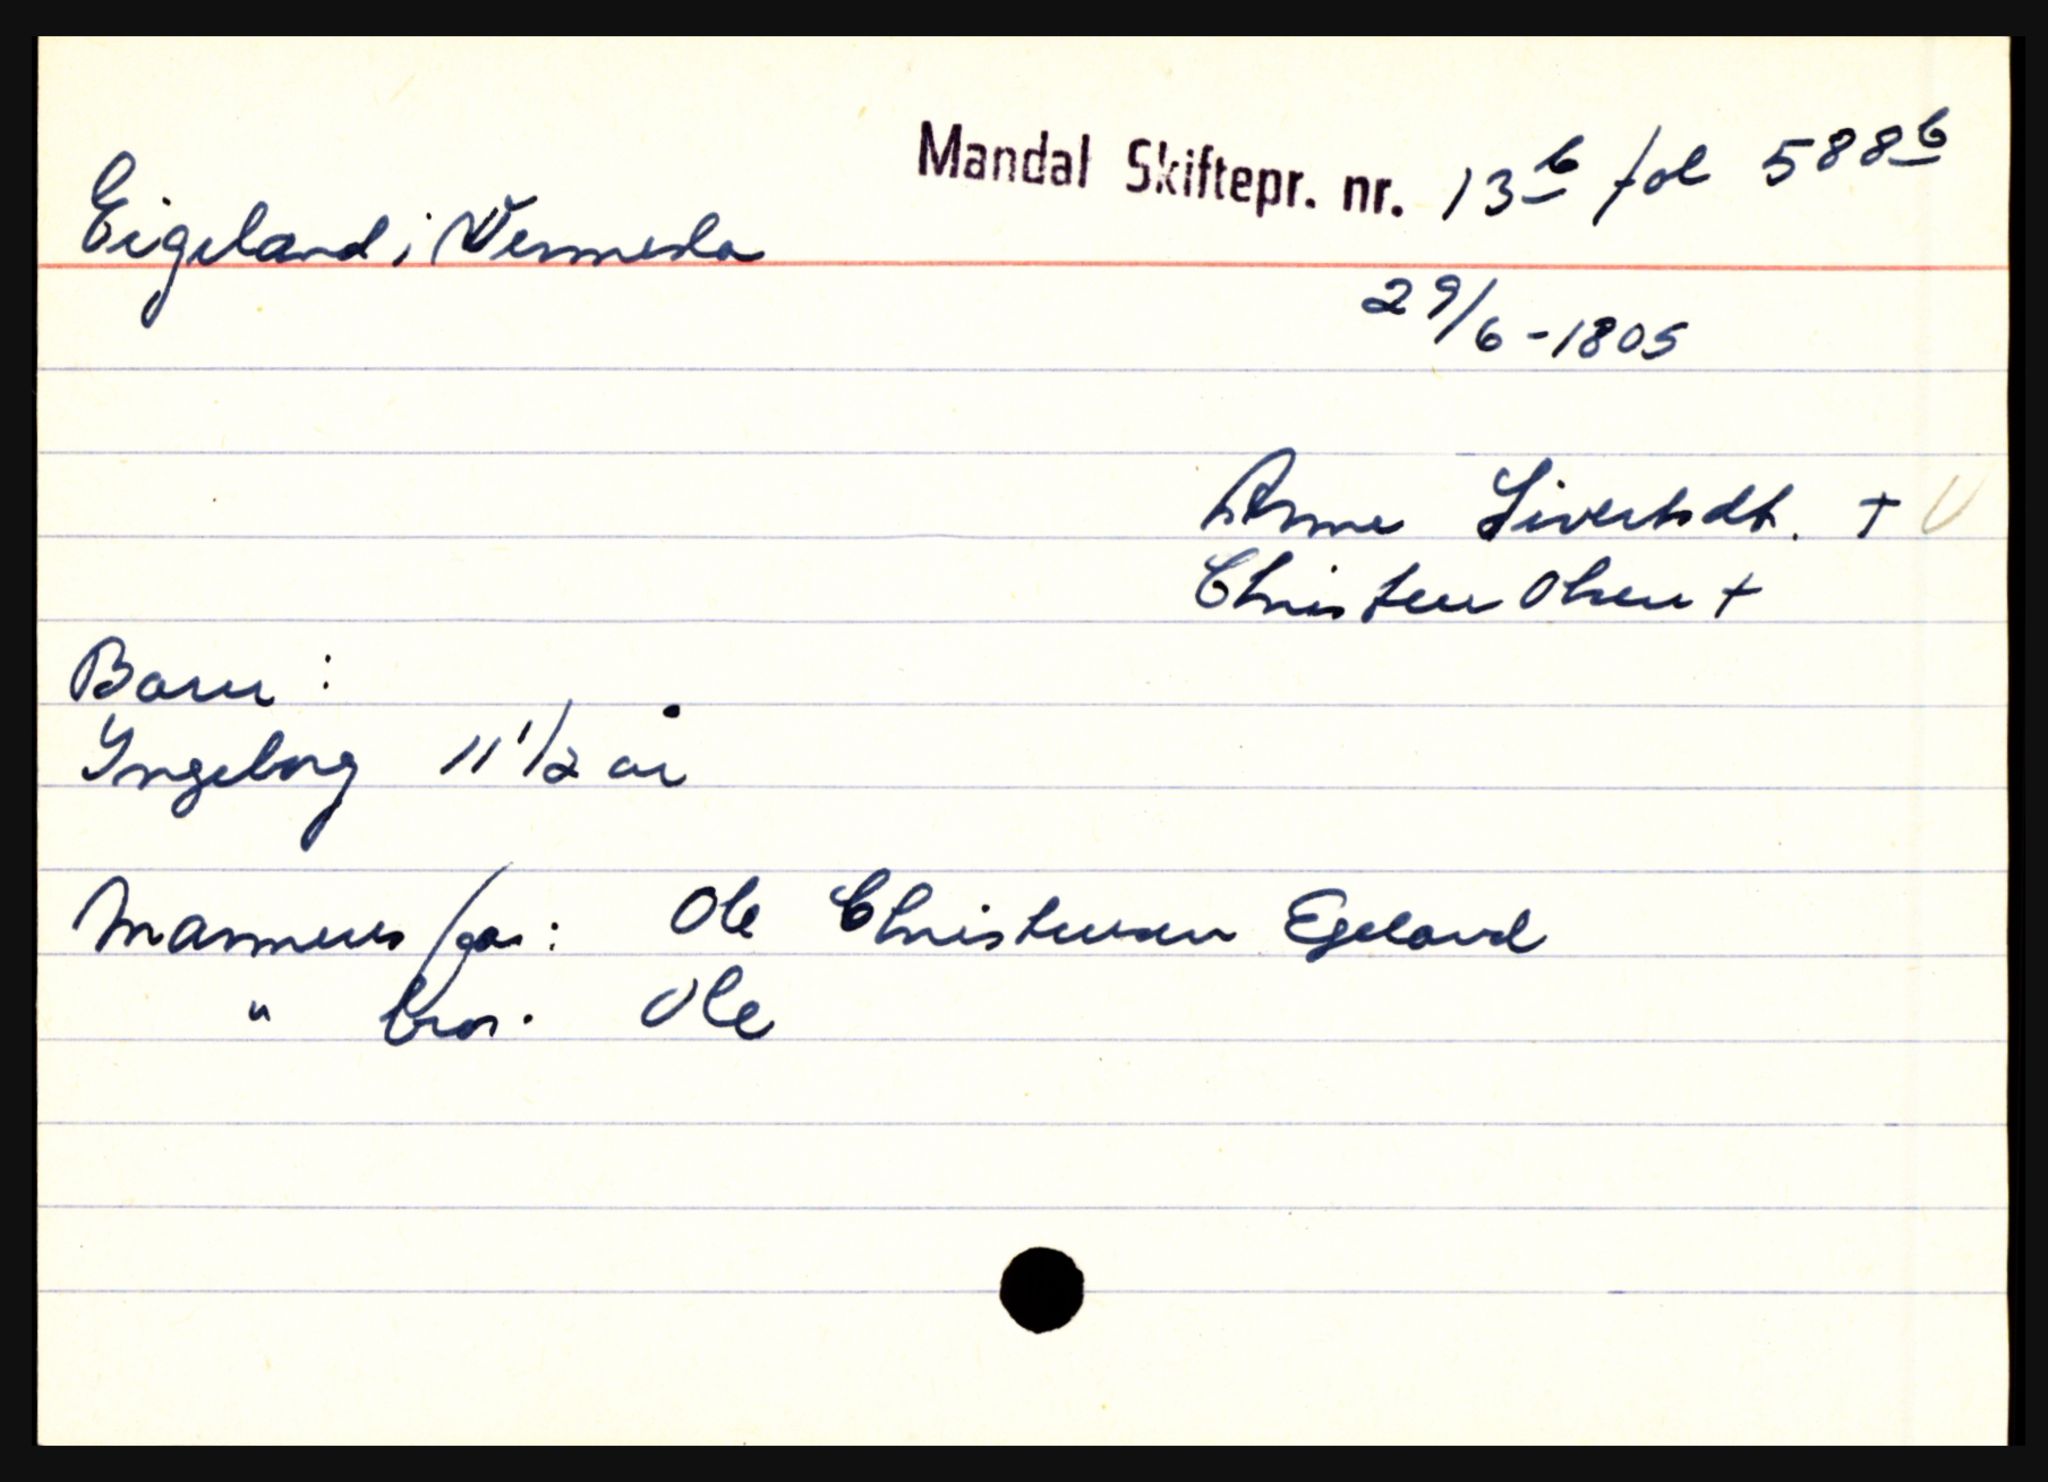 Mandal Skiftepr. nr. 13b fol 588b
Eigeland i Vennesla
29/6-1805
Anne Sivertsdt. + V
Christen Olsen +
Barn :
Ingeborg 11 1/2 år
Mannens far: Ole Christensen Egeland
" bror. Ole